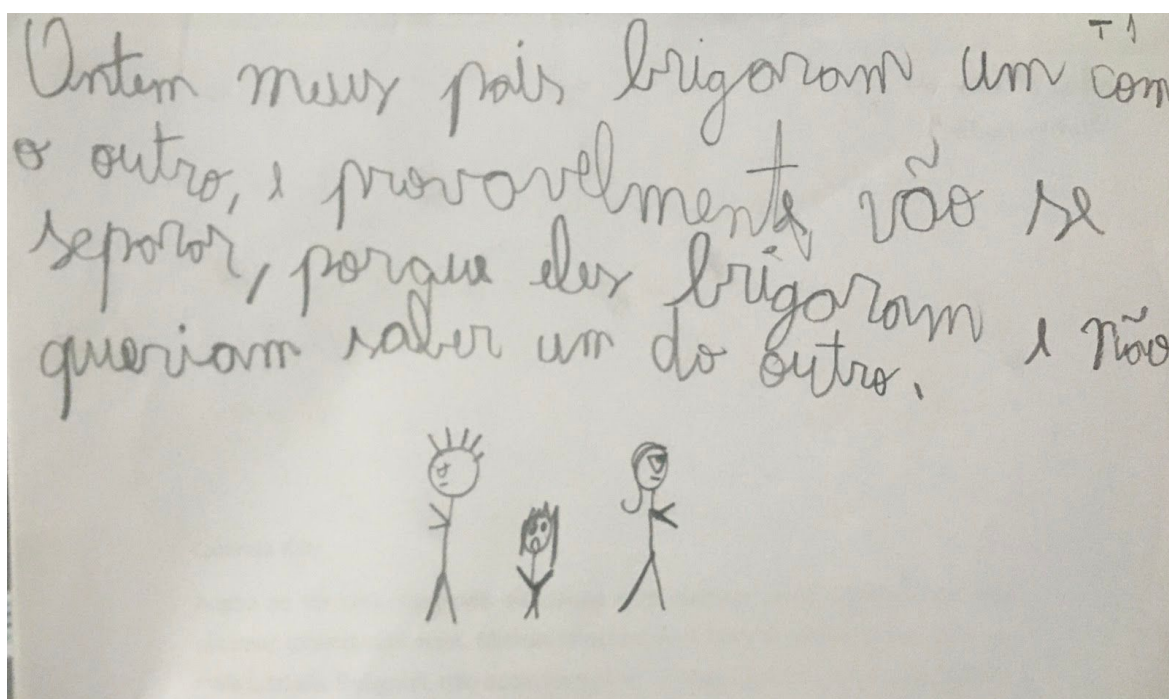 T1
Ontem meus pais brigaram um com
o outro, e provavelmente vão se
separar, porque eles brigaram e não
queriam saber um do outro.